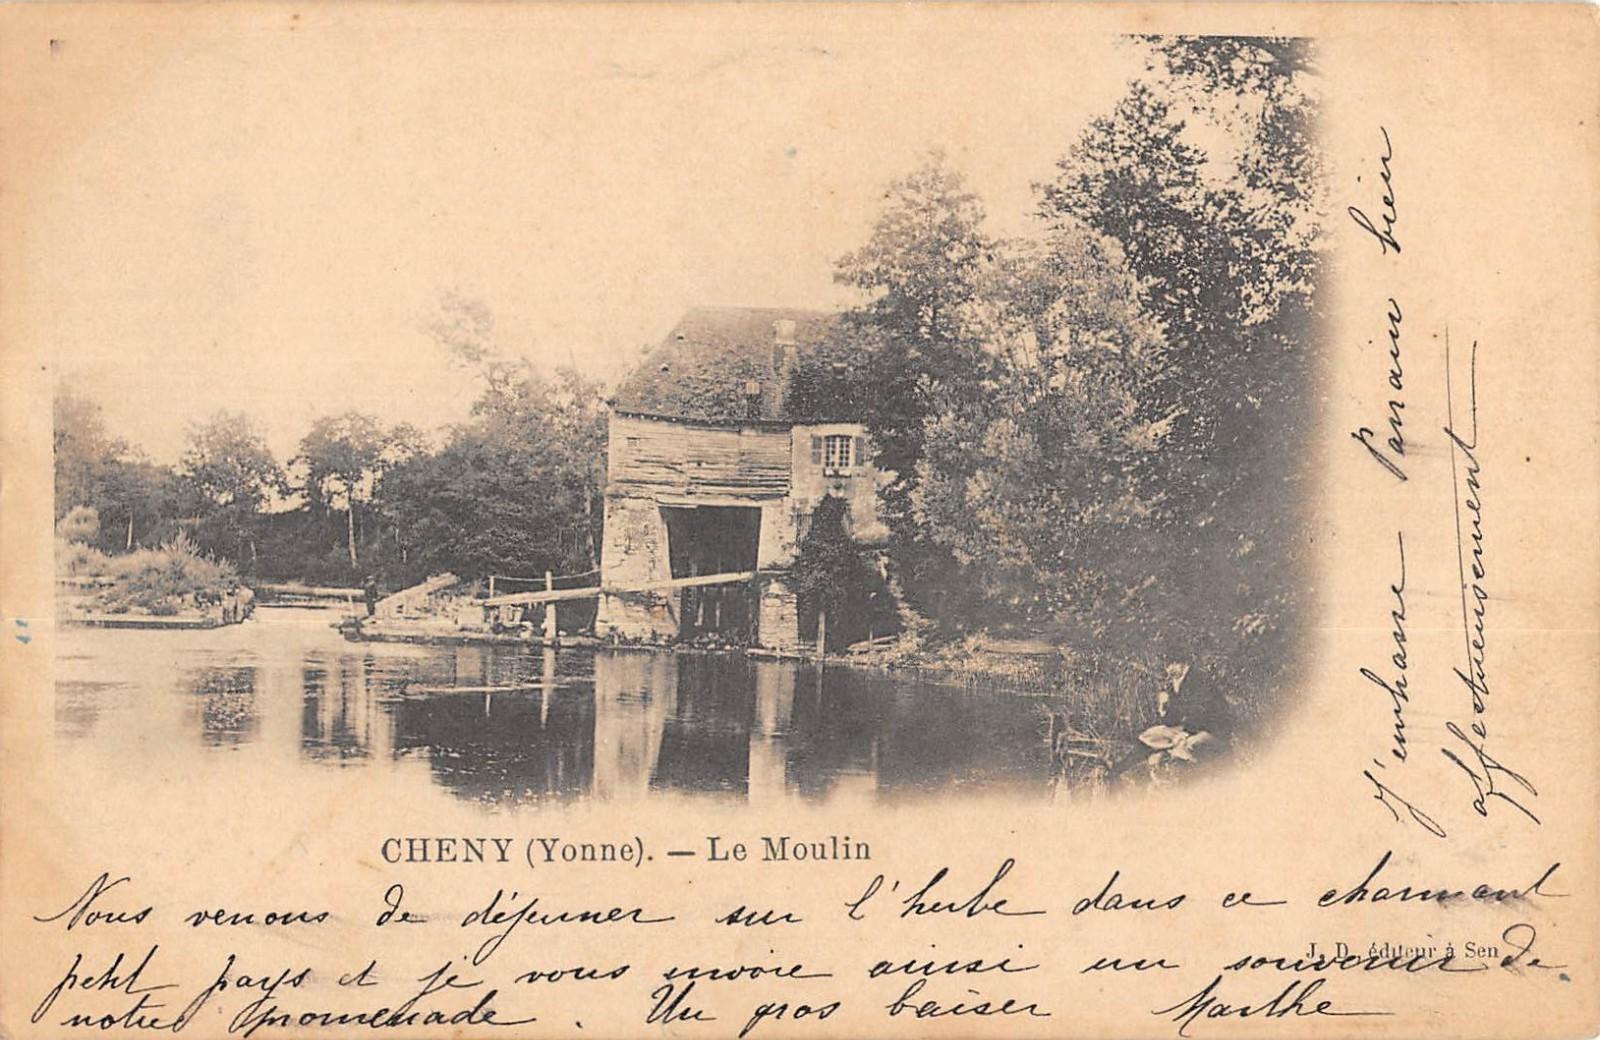 CHENY (Yonne). — Le Moulin
Nous venons de déjeuner sur l'herbe dans ce charmant
petit pays et je vous envoie ainsi un souvenir de
notre promenade. Un gros baiser Marthe
J. D. éditeur à Sen
J'embrasse Parain bien
affectueusement